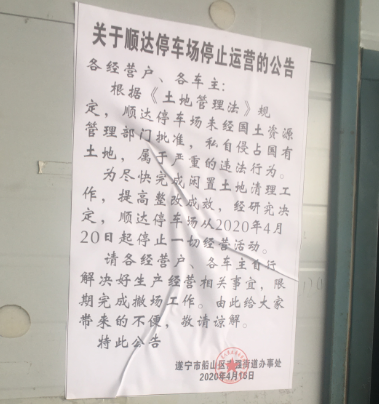 关于顺达停车场停止运营的公告
各经营户、各车主：
根据《土地管理法》规
定，顺达停车场未经国土资源
管理部门批准，私自侵占国有
土地，属于严重的违法行为。
为尽快完成闲置土地清理工
作，提高整改成效，经研究决
定，顺达停车场从2020年4月
20日起停止一切经营活动。
请各经营户、各车主自行
解决好生产经营相关事宜，限
期完成撤场工作。由此给大家
带来的不便，敬请谅解。
特此公告
遂宁市船山区街道办事处
2020年4月15日